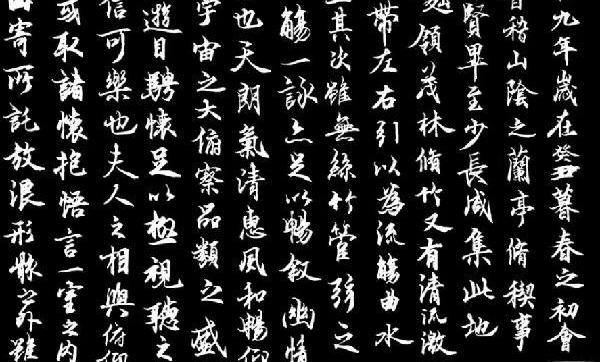 九年歲在癸丑暮春之初會
稽山陰之蘭亭脩稧事
賢畢至少長咸集此地
領茂林脩竹又有清流激
帶左右引以為流觴曲水
其次雖無絲竹管弦之
觴一詠亦足以暢敘幽情
也天朗氣清惠風和暢仰
宇宙之大俯察品類之盛
遊目騁懷足以極視聽之
信可樂也夫人之相與俯仰
或取諸懷抱悟言一室之內
寄所託放浪形骸之外雖